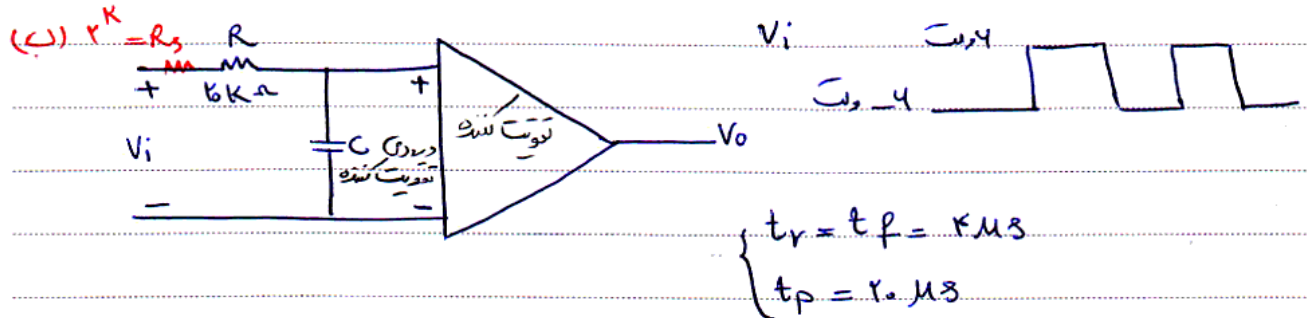 (ب) ۲ᴷ = Rs R
۲۵KΩ
Vi
+ + - -
C
ورودی تقویت کننده
تقویت کننده
Vo
Vi
۷ ولت
-۷ ولت
tr = tf = ۴ μs
tp = ۲۰ μs